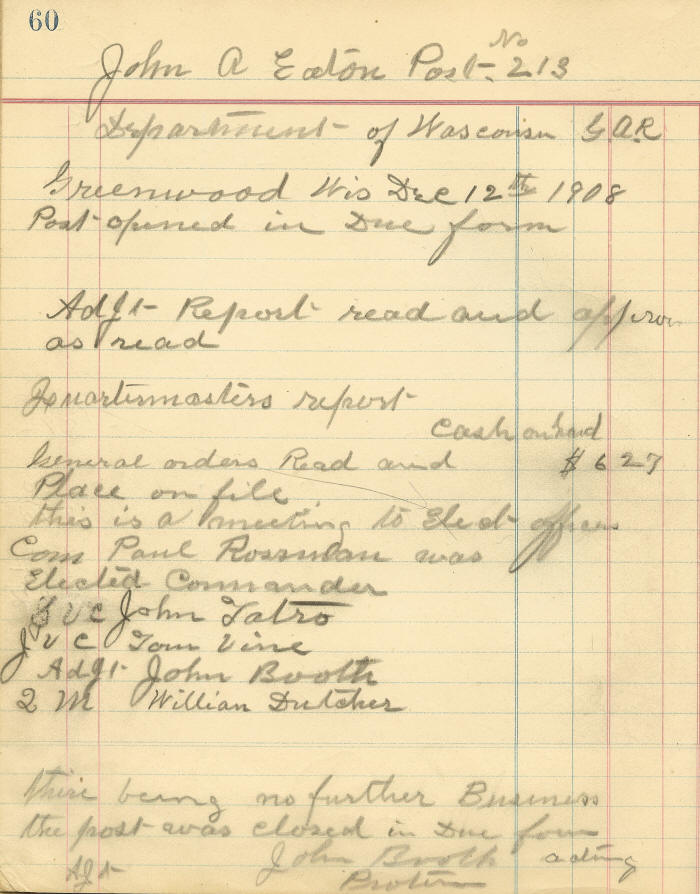 60
No
John A Eaton Post. 213
Department of Wasconsin G.A.R
Greenwood Wis Dec 12th 1908
Post opened in Due form
Adjt Report read and approv
as read
Quartermasters report
Cash on hand
General orders Read and $ 6 27
Place on file
this is a meeting to Elect officers
Com Paul Rossman was
Elected Commander
S V C John Tatro
J V C Tom Vine
Adjt John Booth
Q M Willian Dutcher
thire being no further Business
the post was closed in Due form
John Booth acting
Ajt